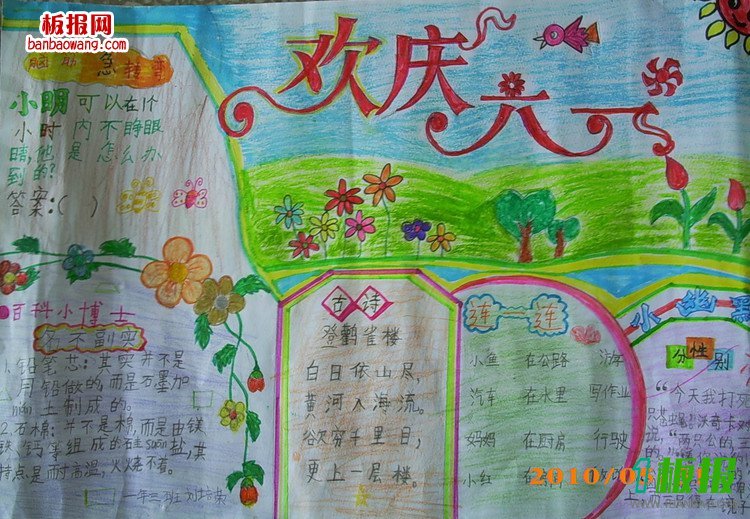 板报网
banbaowang.com
脑筋急转弯
小明可以在1个
小时内不睁眼
睛,他是怎么办
到的?
答案:( )
欢庆六一
百科小博士
名不副实
铅笔芯:其实并不是
用铅做的,而是石墨加
土制成的。
2.石棉:并不是棉,而是由镁
铁、钙等组成的硅suān盐,其
特点是耐高温,火烧不着。
一年三班
古诗
登鹳雀楼
白日依山尽,
黄河入海流。
欲穷千里目,
更上一层楼。
连一连
小鱼 在公路 游
汽车 在水里 写作业
妈妈 在厨房 行驶
小红 在
小幽默
分性别
“今天我打死
“两只公的三
2010/06
板报